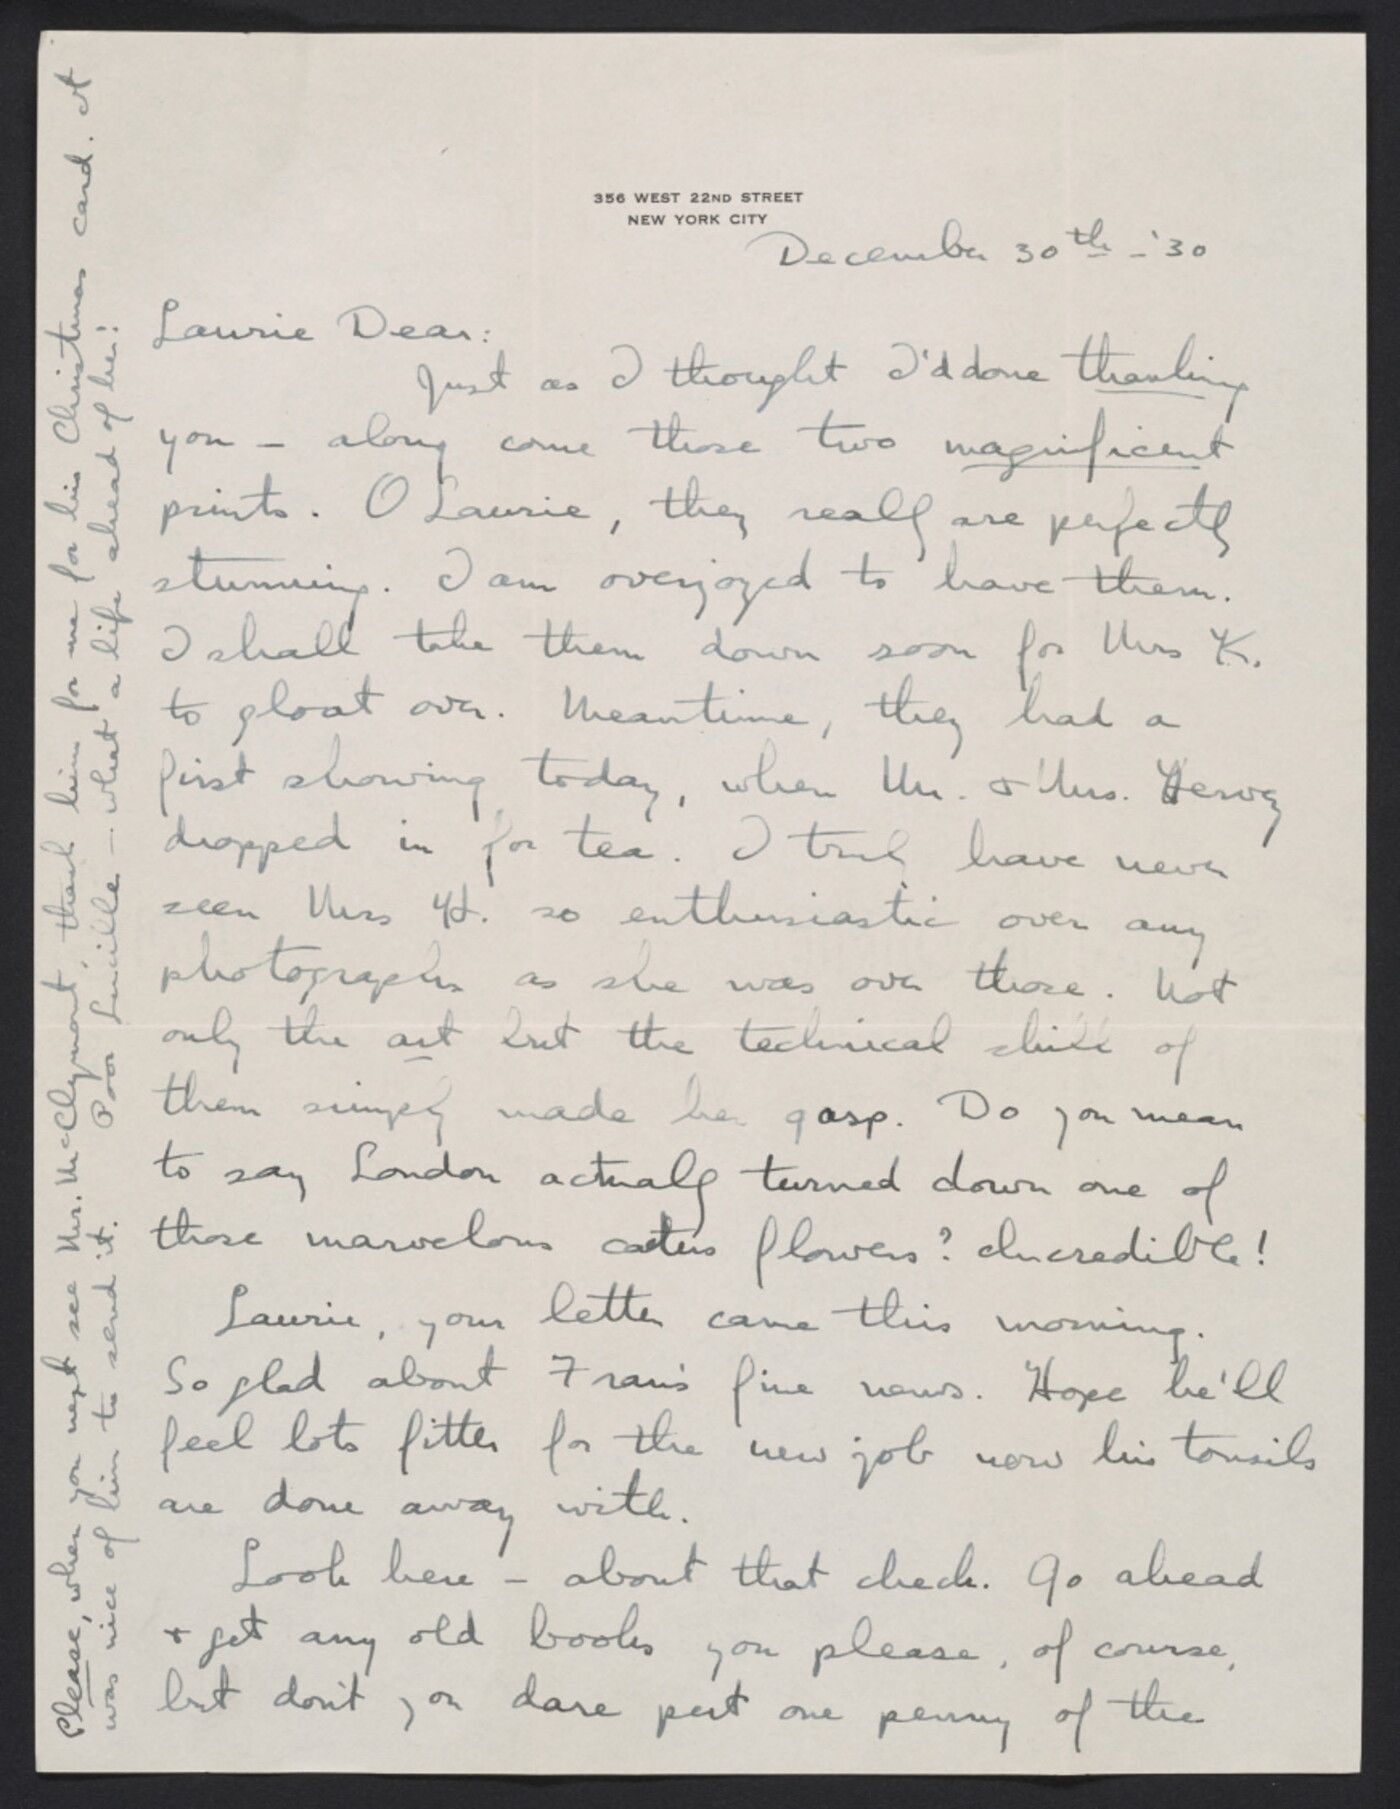 356 WEST 22ND STREET
NEW YORK CITY
December 30th - '30
Laurie Dear:
Just as I thought I'd done thanking
you - along come those two magnificent
prints. O Laurie, they really are perfectly
stunning. I am overjoyed to have them.
I shall take them down soon for Mrs K.
to gloat over. Meantime, they had a
first showing today, when Mr. & Mrs. Hervey
dropped in for tea. I truly have never
seen Mrs H. so enthusiastic over any
photographs as she was over these. Not
only the art but the technical skill of
them simply made her gasp. Do you mean
to say London actually turned down one of
those marvelous cactus flowers? Incredible!
Laurie, your letter came this morning.
So glad about Fran's fine news. Hope he'll
feel lots fitter for the new job now his tonsils
are done away with.
Look here - about that check. Go ahead
& get any old books you please, of course,
but don't you dare put one penny of the
Please, when you next see Mr. McClymont, thank him for me for his Christmas card. It
was nice of him to send it. Poor Lucille - what a life ahead of her!